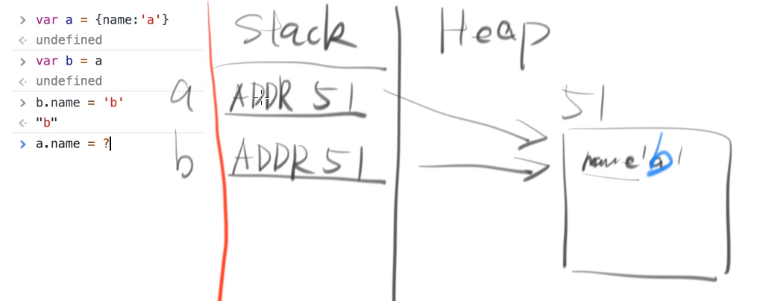 > var a = {name:'a'}
< undefined
> var b = a
< undefined
> b.name = 'b'
< "b"
> a.name = ?
Stack
a ADDR 51
b ADDR 51
Heap
51
name 'b'